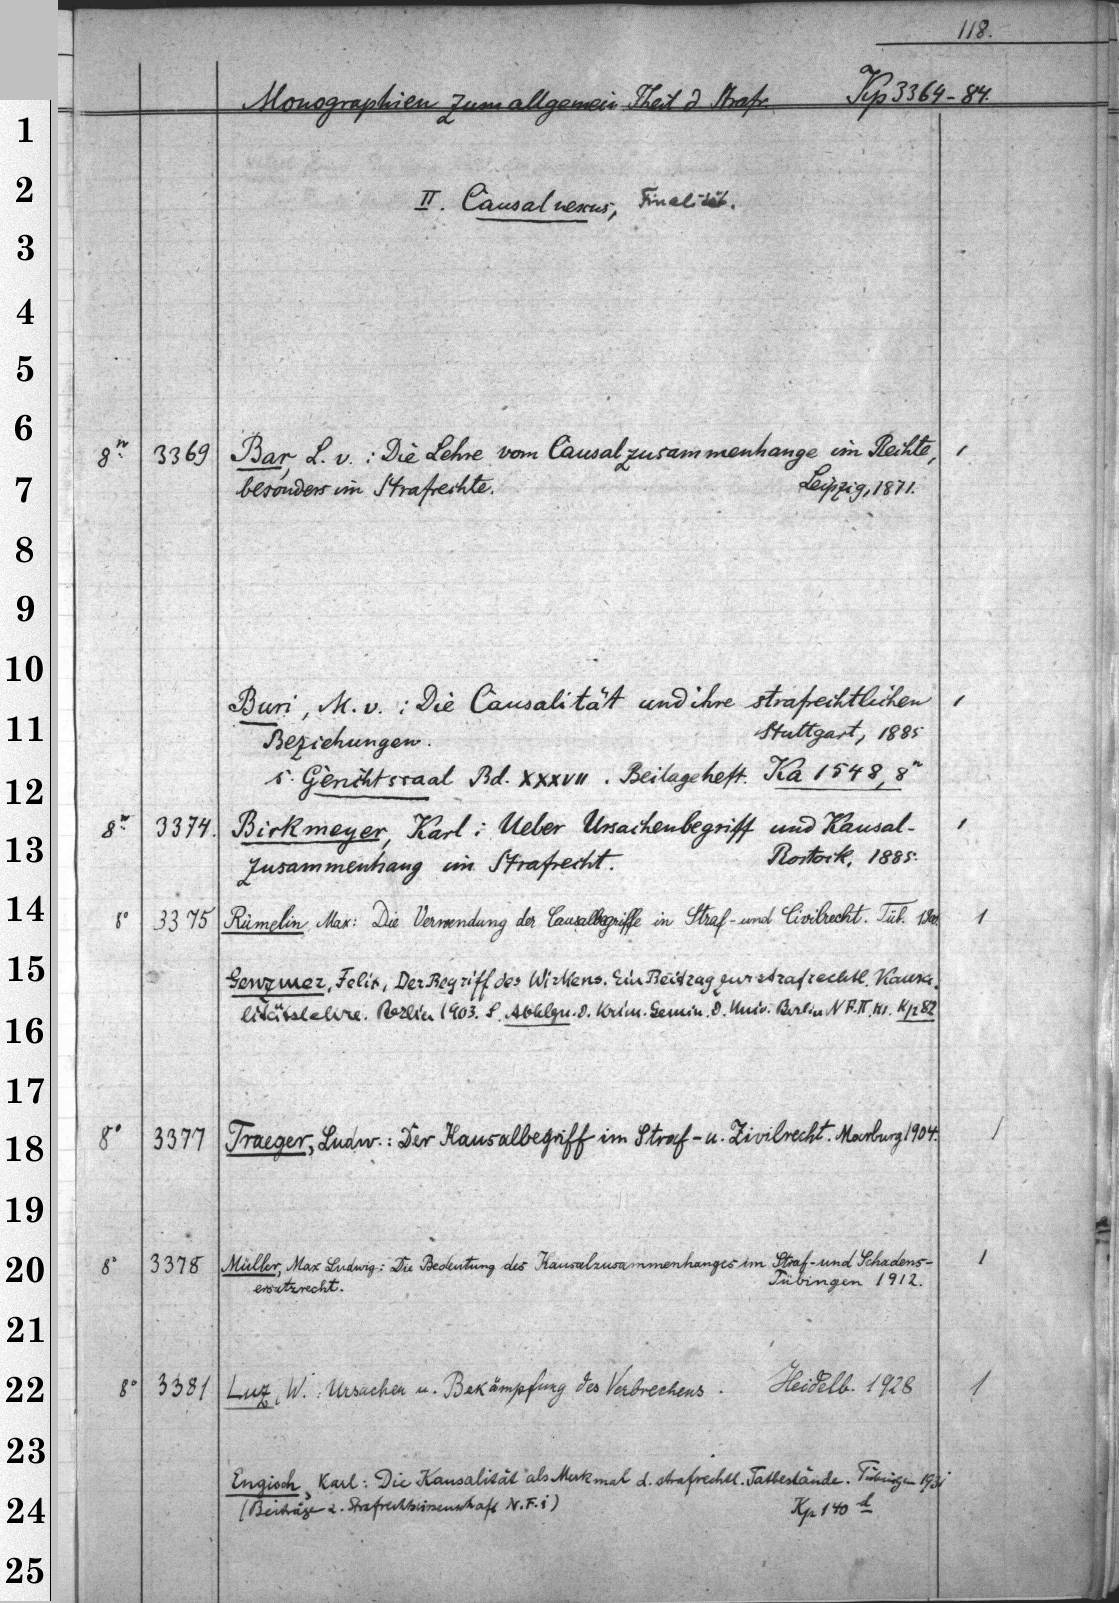 118.
Monographien zum allgemein Theil d Strafr. Kp 3364-84.
II. Causalnexus, Finalität.
8º 3369 Bar, L. v.: Die Lehre vom Causalzusammenhange im Rechte, 1
besonders im Strafrechte. Leipzig, 1871.
Buri, M. v.: Die Causalität und ihre strafrechtlichen 1
Beziehungen. Stuttgart, 1885
s. Gerichtssaal Bd. XXXVII. Beilageheft. Ka 1548, 8º
8º 3374. Birkmeyer, Karl: Ueber Ursachenbegriff und Kausal- 1
zusammenhang im Strafrecht. Rostock, 1885.
8º 3375 Rümelin, Max: Die Verwendung der Causalbegriffe in Straf- und Civilrecht. Tüb. 1900. 1
Genzmer, Felix, Der Begriff des Wirkens. Ein Beitrag zur strafrechtl. Kausa-
litätslehre. Berlin 1903. S. Abhlgn. d. krim. Semin. d. Univ. Berlin N F. II, H1. Kp 82
8º 3377 Traeger, Ludw.: Der Kausalbegriff im Straf- u. Zivilrecht. Marburg 1904. 1
8º 3378 Müller, Max Ludwig: Die Bedeutung des Kausalzusammenhanges im Straf- und Schadens- 1
ersatzrecht. Tübingen 1912.
8º 3381 Luz, W.: Ursachen u. Bekämpfung des Verbrechens. Heidelb. 1928 1
Engisch, Karl: Die Kausalität als Merkmal d. strafrechtl. Tatbestände. Tübingen 1931
(Beiträge z. Strafrechtswissenschaft N. F. 1) Kp 140 d
1
2
3
4
5
6
7
8
9
10
11
12
13
14
15
16
17
18
19
20
21
22
23
24
25